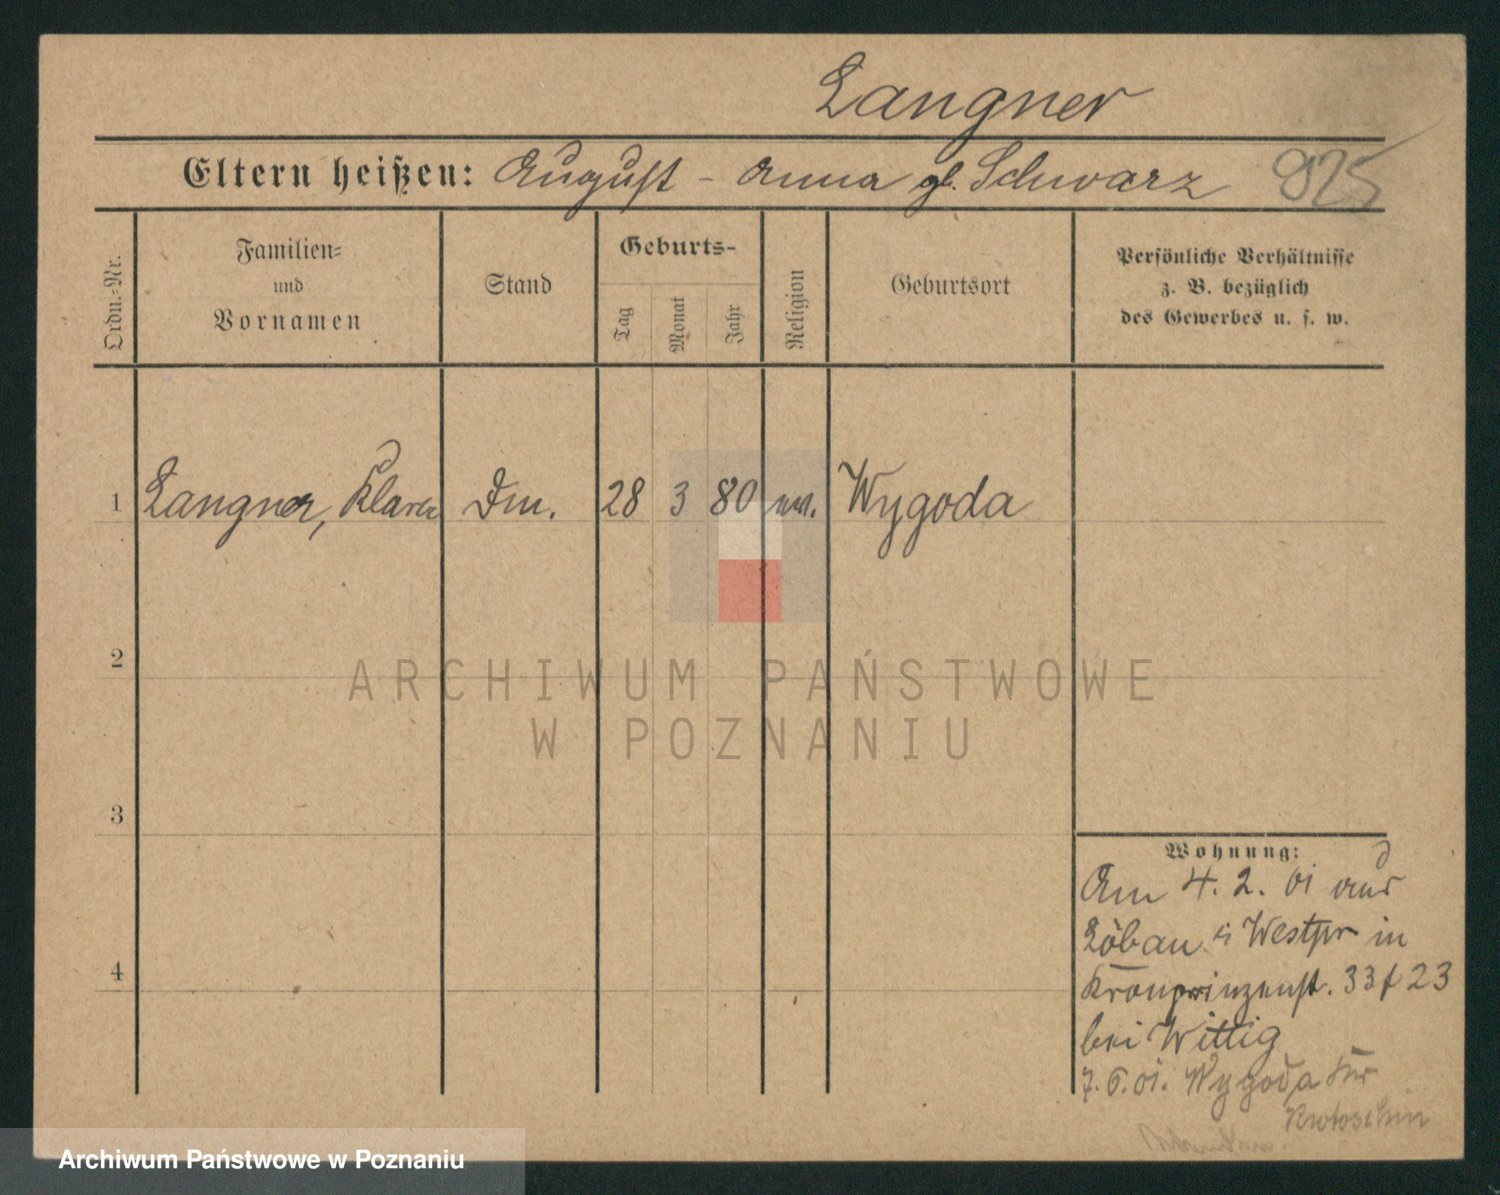 Langner
Eltern heißen: August - Anna gb. Schwarz 925
Ordn.-Nr.
Familien-
und
Vornamen
Stand
Geburts-
Tag
Monat
Jahr
Religion
Geburtsort
Persönliche Verhältnisse
z. B. bezüglich
des Gewerbes u. s. w.
1 Langner, Klara Dm. 28 3 80 ev. Wygoda
2
3
4
ARCHIWUM PAŃSTWOWE
W POZNANIU
Wohnung:
Am 4. 2. 01 aus
Löbau i Westpr in
Kronprinzenst. 33 f 23
bei Wittig
7. 6. 01. Wygoda Kr
Krotoschin
Archiwum Państwowe w Poznaniu